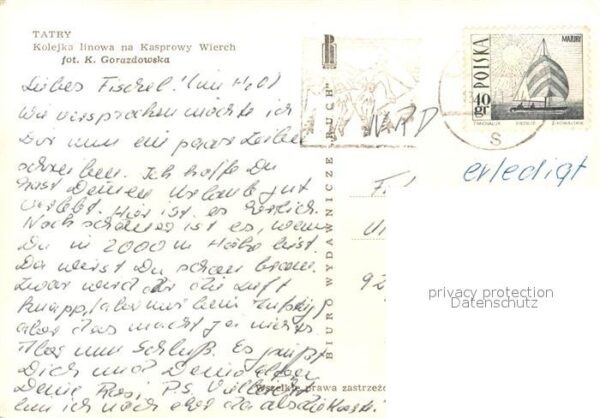 TATRY
Kolejka linowa na Kasprowy Wierch
fot. K. Gorazdowska
Liebes Fischel!
Wie versprochen möchte ich
Dir nun ein paar Zeilen
schreiben. Ich hoffe Du
hast Deinen Urlaub gut
verlebt. Hier ist es herrlich.
Noch schöner ist es, wenn
Du in 2000 m Höhe bist.
Da wirst Du schon braun.
Zwar wird die Luft
knapp, aber
aber das macht ja nichts
Aber nun Schluß. Es grüßt
Dich und Deine Eltern
Deine Rosi P.S. Vielleicht
bin ich noch eher da als die Karte.
BIURO WYDAWNICZE „RUCH"
Wszelkie prawa zastrzeżo
POLSKA
MAZURY
40 gr
S
erledigt
92
privacy protection
Datenschutz